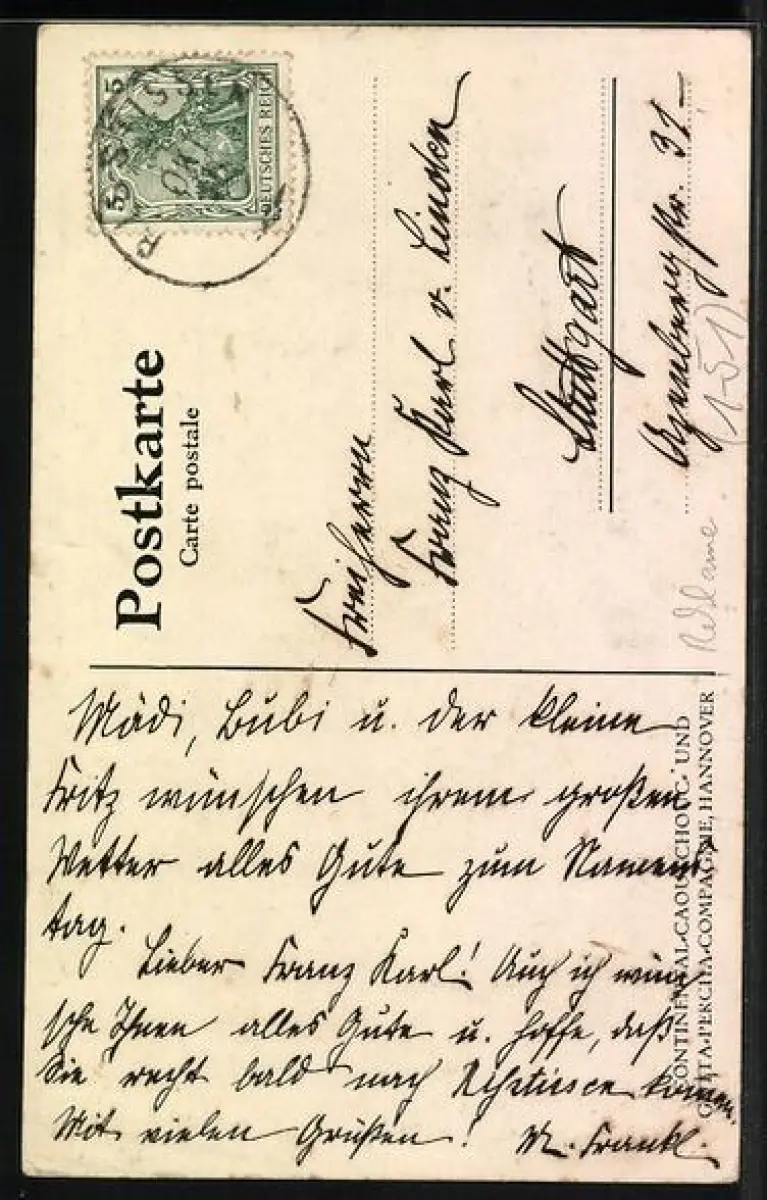 Postkarte
Carte postale
DEUTSCHES REICH
5 5
Freiherrn
Franz Karl v. Linden
Stuttgart
str. 31-
(151)
Reklame
Mädi, Bubi u. der kleine
Fritz wünschen ihrem großen
Vetter alles Gute zum Namens
tag.
Lieber Franz Karl! Auch ich wün
sche Ihnen alles Gute u. hoffe, daß
Sie recht bald nach kommen.
Mit vielen Grüßen! M. Frankl.
CONTINENTAL-CAOUTCHOUC- UND
GUTTA-PERCHA-COMPAGNIE, HANNOVER